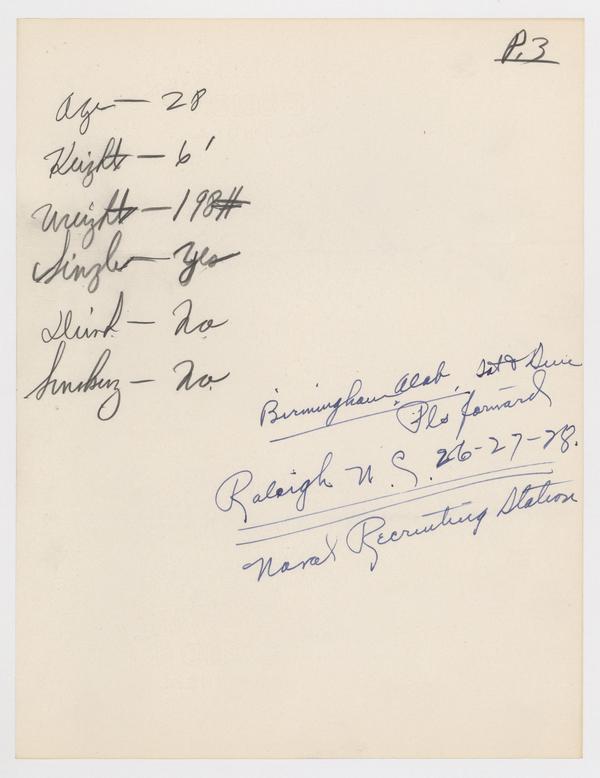 P. 3
Age — 28
Height — 6'
Weight — 198#
Single — Yes
Drink — No
Smoking — No
Birmingham Alab, Sat &
Pls forward
Raleigh N. C. 26-27-28.
Naval Recruiting Station